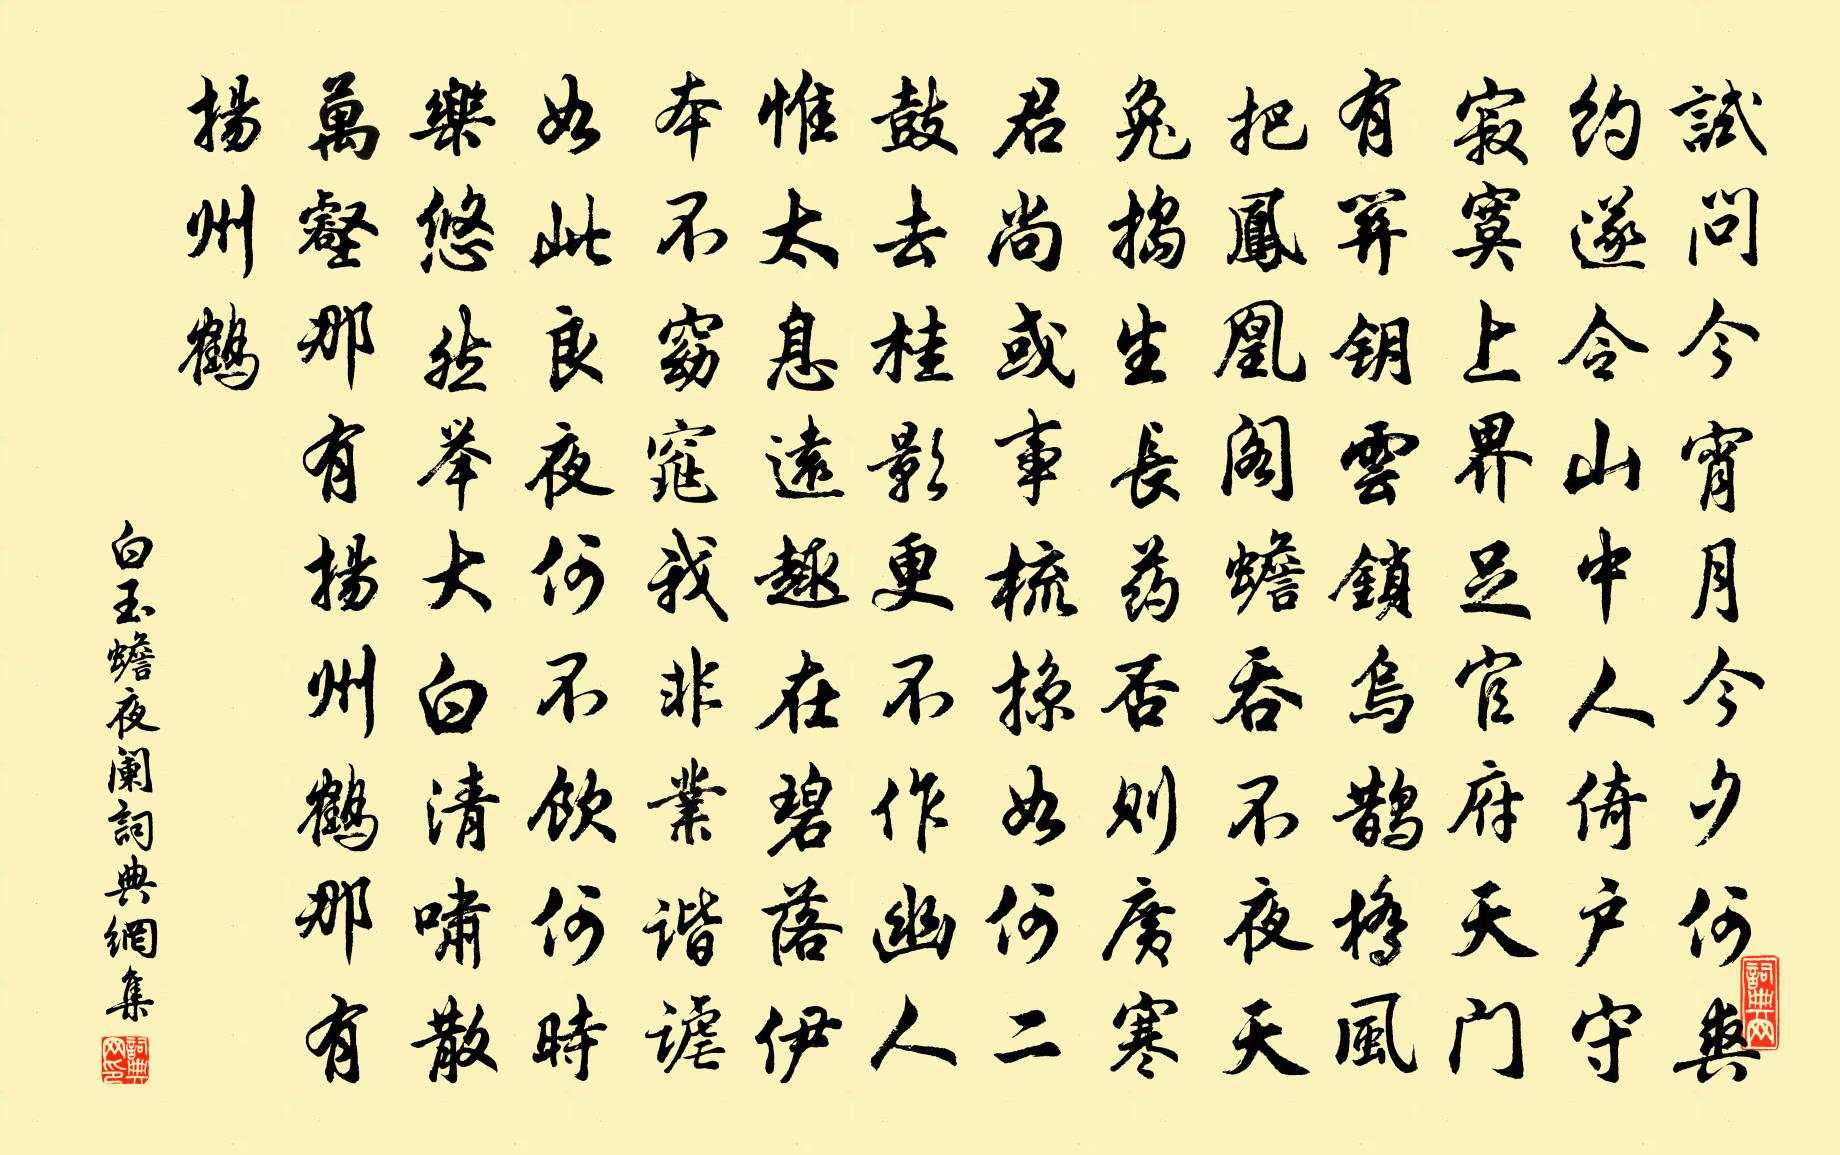 試問今宵月今夕何爽
約遂令山中人倚户守
寂寞上界足官府天门
有羿钥雲鎖烏鹊橋風
把鳳凰阁蟾吞不夜天
兔搗生長药否则廣寒
君尚或事梳掠如何二
鼓去桂影更不作幽人
惟太息遠趣在碧落伊
本不窈窕我非業谐謔
如此良夜何不飲何時
樂悠然举大白清嘯散
萬壑那有揚州鶴那有
揚州鶴
白玉蟾夜阑詞典網集
詞典网